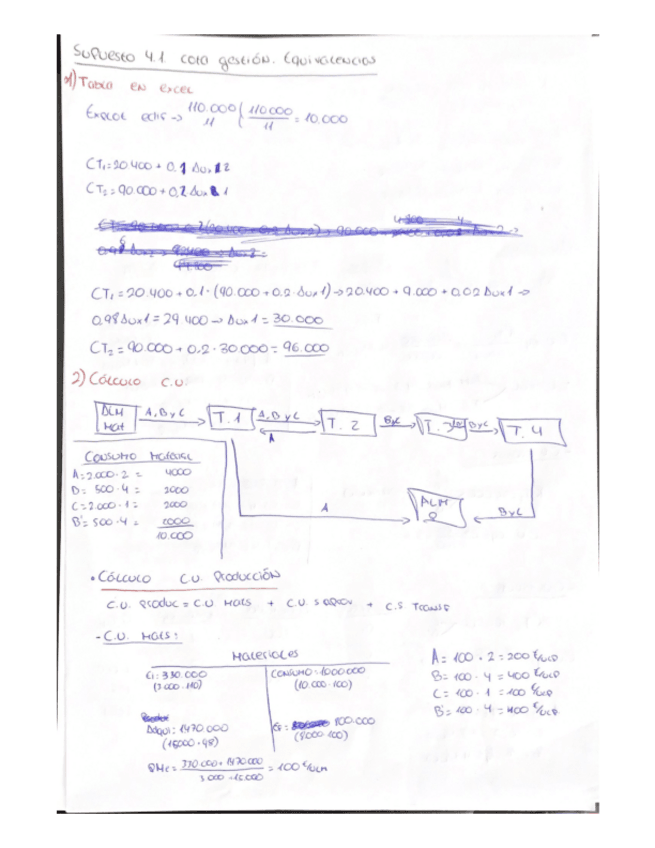 Supuesto 4.1 cota gestión. Equivalencias
1) Tabla en excel
110.000 / 11 { 110000 / 11 = 10.000
CT₁ = 20.400 + 0.1 Aux 2
CT₂ = 90.000 + 0.2 Aux 1
CT₁ = 20.400 + 0.1 · (90.000 + 0.2 · Aux 1) → 20.400 + 9.000 + 0.02 Aux 1 →
0.98 Aux 1 = 29 400 → Aux 1 = 30.000
CT₂ = 90.000 + 0.2 · 30 000 = 96.000
2) Cálculo C.U.
ALM Mat A, B y C T. 1 A, B y C A T. 2 B y C B y C T. 4
Consumo Material
A = 2.000 · 2 = 4000
B = 500 · 4 = 2000
C = 2.000 · 1 = 2000
B' = 500 · 4 = 2000
10.000
A ALM B y C
• Cálculo C.U. Producción
C.U. Produc = C.U Mats + C.U. + C.S Transf
- C.U. Mats:
Materiales
Ei: 330.000 (3.000 · 110)
Consumo: 1000000 (10.000 · 100)
Adqui: 1470 000 (15000 · 98)
(8000 · 100)
PMC = 330 000 + 1470 000 / 3 000 + 15 000 = 100 €/ucm
A = 100 · 2 = 200 €/ucp
B = 100 · 4 = 400 €/ucp
C = 100 · 1 = 100 €/ucp
B' = 100 · 4 = 400 €/ucp